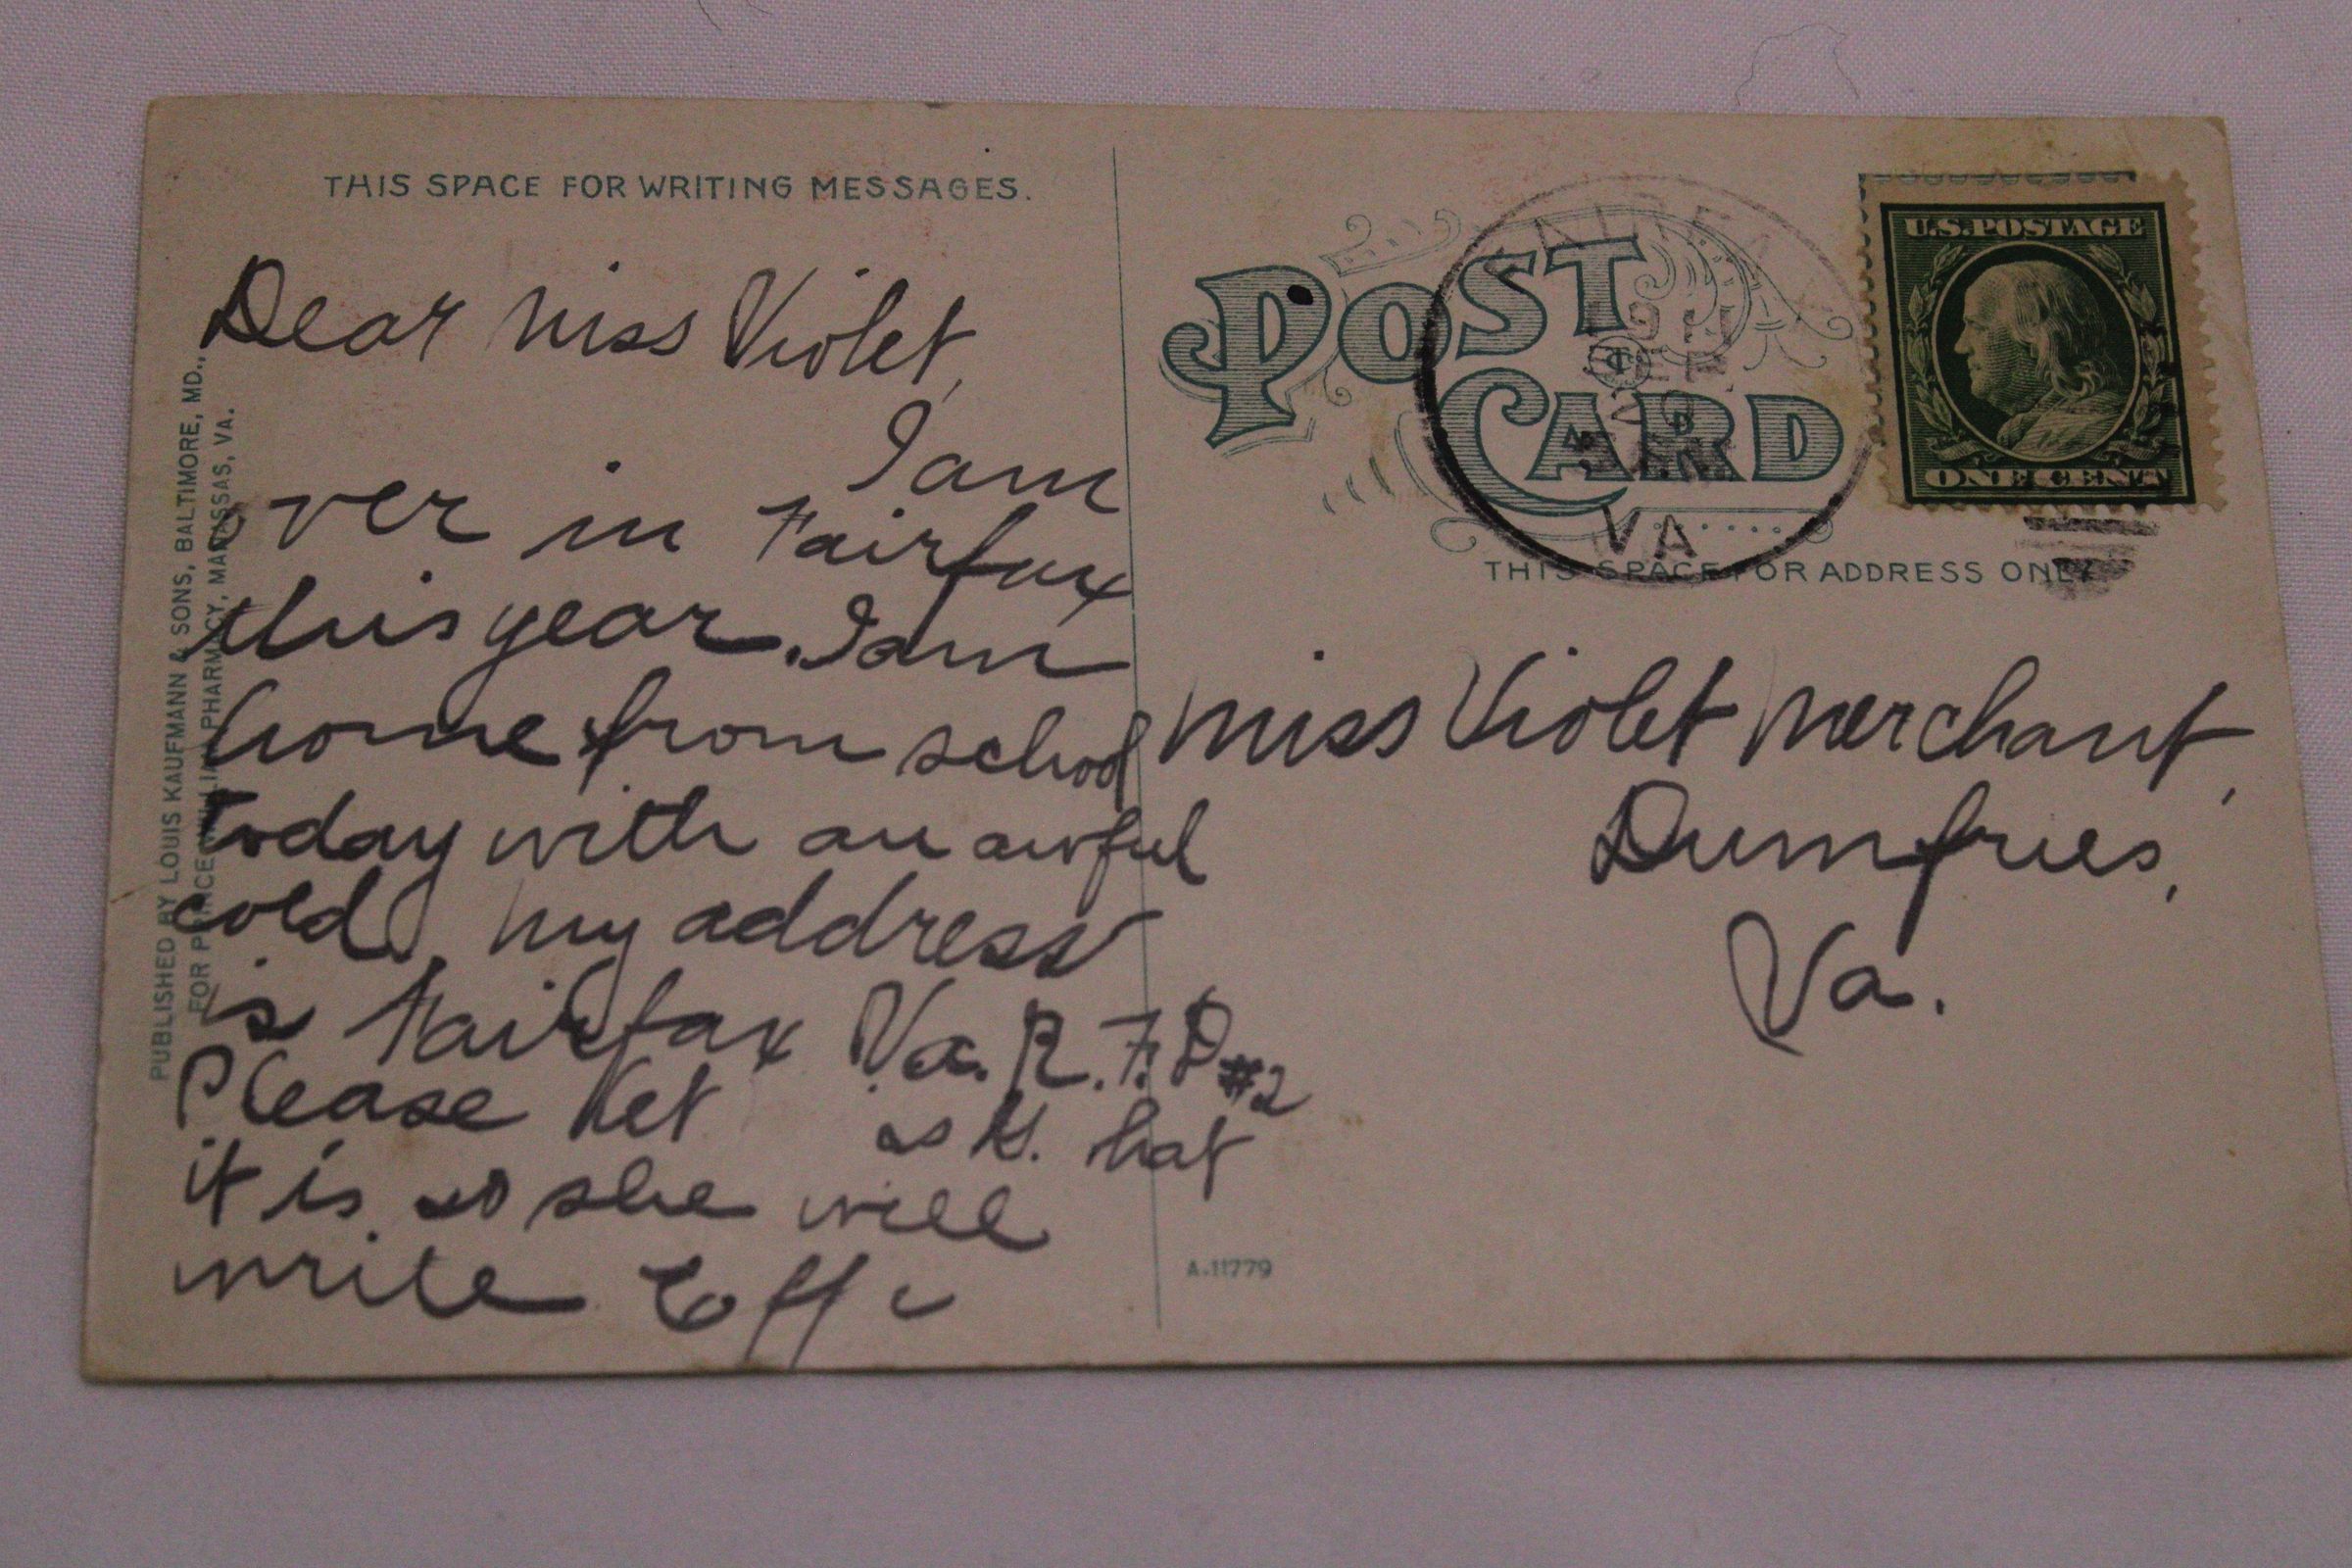 THIS SPACE FOR WRITING MESSAGES.
Dear Miss Violet,
I am
over in Fairfax
this year. I am
home from school
today with an awful
cold. my address
is Fairfax Va. R.F.D #2
Please
it is so she will
write Effie
PUBLISHED BY LOUIS KAUFMANN & SONS, BALTIMORE, MD.,
FOR PRINCE WILLIAM PHARMACY, MANASSAS, VA.
POST
CARD
FAIRFAX
VA
U.S. POSTAGE
ONE CENT
THIS SPACE FOR ADDRESS ONLY
Miss Violet Merchant,
Dumfries,
Va.
A-11779